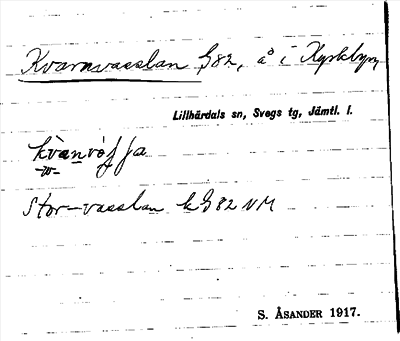 Kvarnvasslan G82, å i Kyrkbyn,
Lillhärdals sn, Svegs tg, Jämtl. l.
-w-
Stor-vasslan k G 82 NM
S. ÅSANDER 1917.